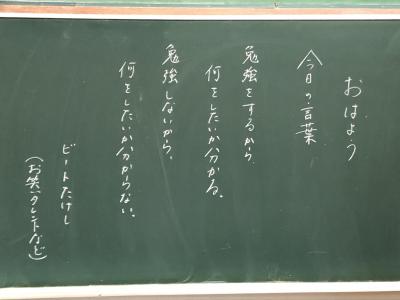 おはよう
今日の言葉
勉強をするから、
何をしたいか分かる。
勉強しないから、
何をしたいか分からない。
ビートたけし
(お笑いタレントなど)